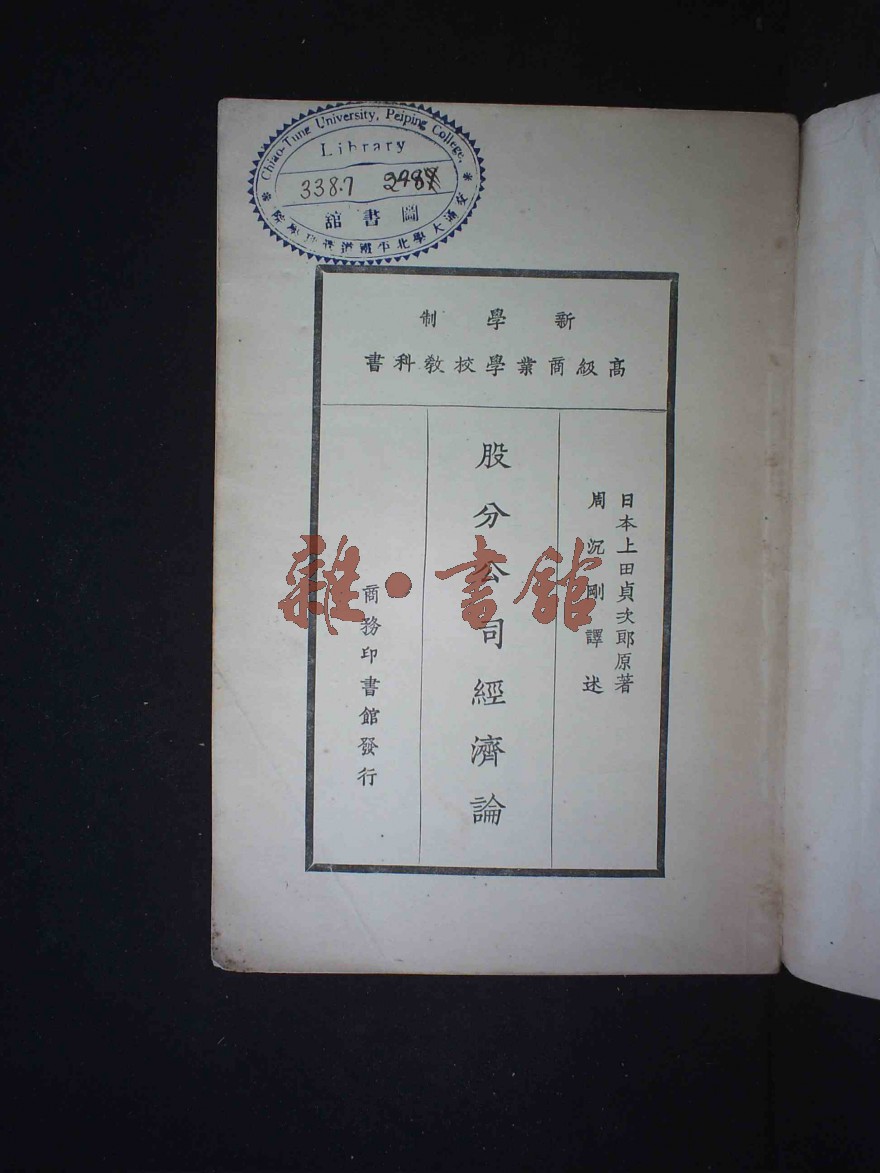 Chiao-Tung University, Peiping College.
Library
338.7
圖書館
新學制
高級商業學校教科書
日本上田貞次郎原著
周沉剛譯述
股分公司經濟論
商務印書館發行
雜·書館